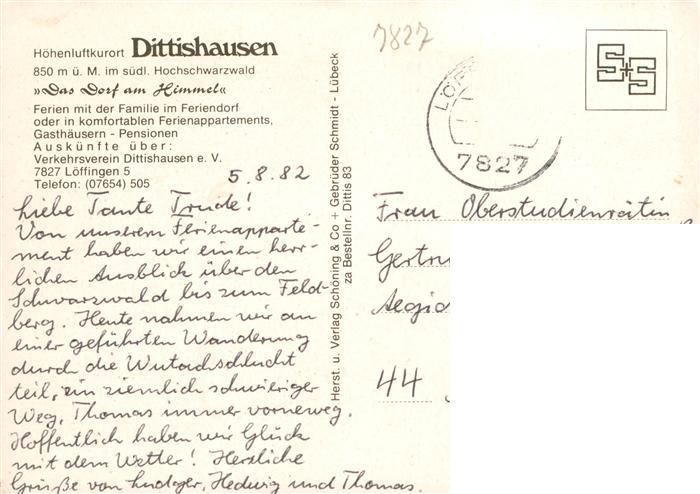 Höhenluftkurort Dittishausen
850 m ü. M. im südl. Hochschwarzwald
»Das Dorf am Himmel«
Ferien mit der Familie im Feriendorf
oder in komfortablen Ferienappartements,
Gasthäusern - Pensionen
Auskünfte über:
Verkehrsverein Dittishausen e. V.
7827 Löffingen 5
Telefon: (07654) 505
5.8.82
Liebe Tante Trude!
Von unserem Ferienapparte-
ment haben wir einen herr-
lichen Ausblick über den
Schwarzwald bis zum Feld-
berg. Heute nahmen wir an
einer geführten Wanderung
durch die Wutachschlucht
teil, ein ziemlich schwieriger
Weg, Thomas immer vorneweg.
Hoffentlich haben wir Glück
mit dem Wetter! Herzliche
Grüße von Ludger, Hedwig und Thomas.
Herst. u. Verlag Schöning & Co + Gebrüder Schmidt - Lübeck
za Bestellnr. Dittis 83
7827
7827
S+S
Frau Oberstudienrätin
44